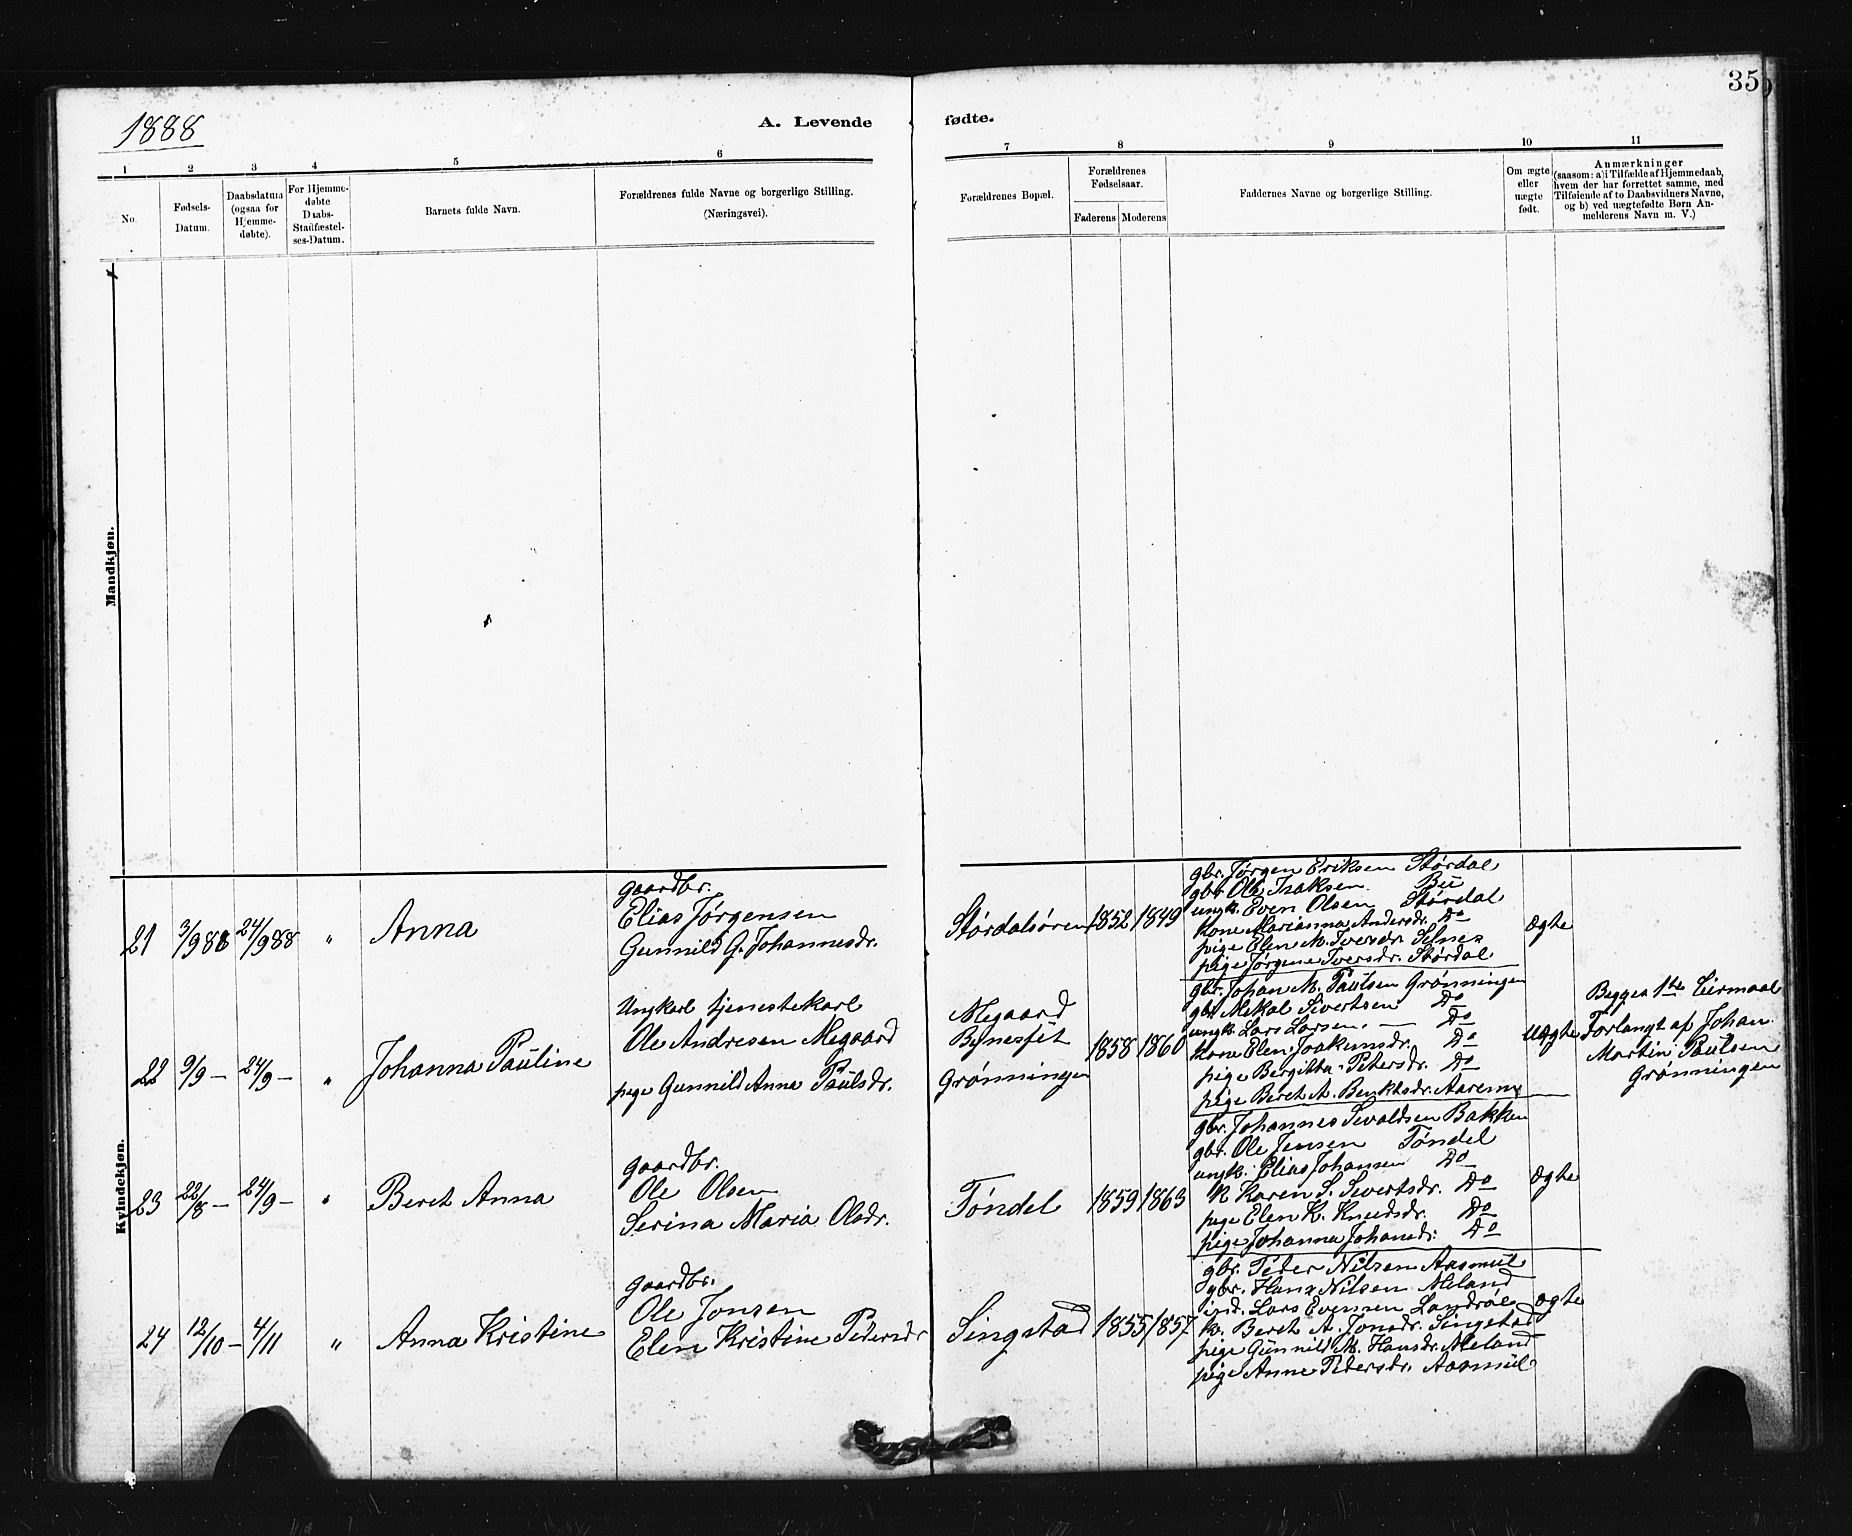 35
1888
A. Levende
fødte.
1 2 3 4 5 6
7 8 9 10 11
No.
Fødsels-
Datum.
Daabsdatum
(ogsaa for
Hjemme-
døbte).
For Hjemme-
døbte
Daabs-
Stadfæstel-
ses-Datum.
Barnets fulde Navn.
Forældrenes fulde Navne og borgerlige Stilling.
(Næringsvei).
Forældrenes Bopæl.
Forældrenes
Fødselsaar.
Faderens
Moderens
Faddernes Navne og borgerlige Stilling.
Om ægte
eller
uægte
født.
Anmærkninger
(saasom: a) i Tilfælde af Hjemmedaab,
hvem der har forrettet samme, med
Tilføiende af to Daabsvidners Navne,
og b) ved uægtefødte Børn An-
melderens Navn m. V.)
Mandkjøn.
Kvindekjøn.
21
3/9 88
24/9 88
"
Anna
gaardbr.
Elias Jørgensen
Gunnild G. Johannesdr.
Størdalsøren
1852
1849
gbr. Jørgen Eriksen Størdal
gbr Ole Isaksen Bü
ungk. Even Olsen Størdal
kone Marianna Andersdr. Do
pige Elen M. Iversdr. Selnes
pige Jørgine Iversdr. Størdal
ægte
22
9/9 –
24/9 –
"
Johanna Pauline
Ungkarl tjenestekarl
Ole Andresen Megaard
pige Gunnild Anna Paulsdr.
Megaard
Bynesset
Grønningen
1858
1860
gbr. Johan M. Paulsen Grønningen
gbr Mekal Sivertsen Do
ungk. Lars Larsen. — Do
kone Elen Joakimsdr. Do
pige Bergitta Petersdr. Do
pige Beret A. Benktsdr. Aarennæ
Uægte
Begges 1te Leirmaal
Forlangt af Johan
Martin Paulsen
Grønningen
23
22/8 –
24/9 –
"
Beret Anna
gaardbr.
Ole Olsen
Serina Maria Olsdr.
Tøndel
1859
1863
gbr. Johannes Sevaldsen Bakken
gbr. Ole Jensen Tøndel
ungk. Elias Johansen Do
k Karen S. Sivertsdr. Do
pige Elen K. Knudsdr. Do
pige Johanna Johansdr. Do
ægte
24
12/10 –
4/11
"
Anna Kristine
gaardbr.
Ole Jonsen
Elen Kristine Pedersdr
Singstad
1855
1857
gbr. Peder Nilsen Aasmül
gbr. Hans Nilsen Meland
ind. Lars Evensen Landrøe
k. Beret A. Jonsdr. Singstad
pige Gunnild M. Hansdr. Meland
pige Anne Pedersdr. Aasmül
ægte